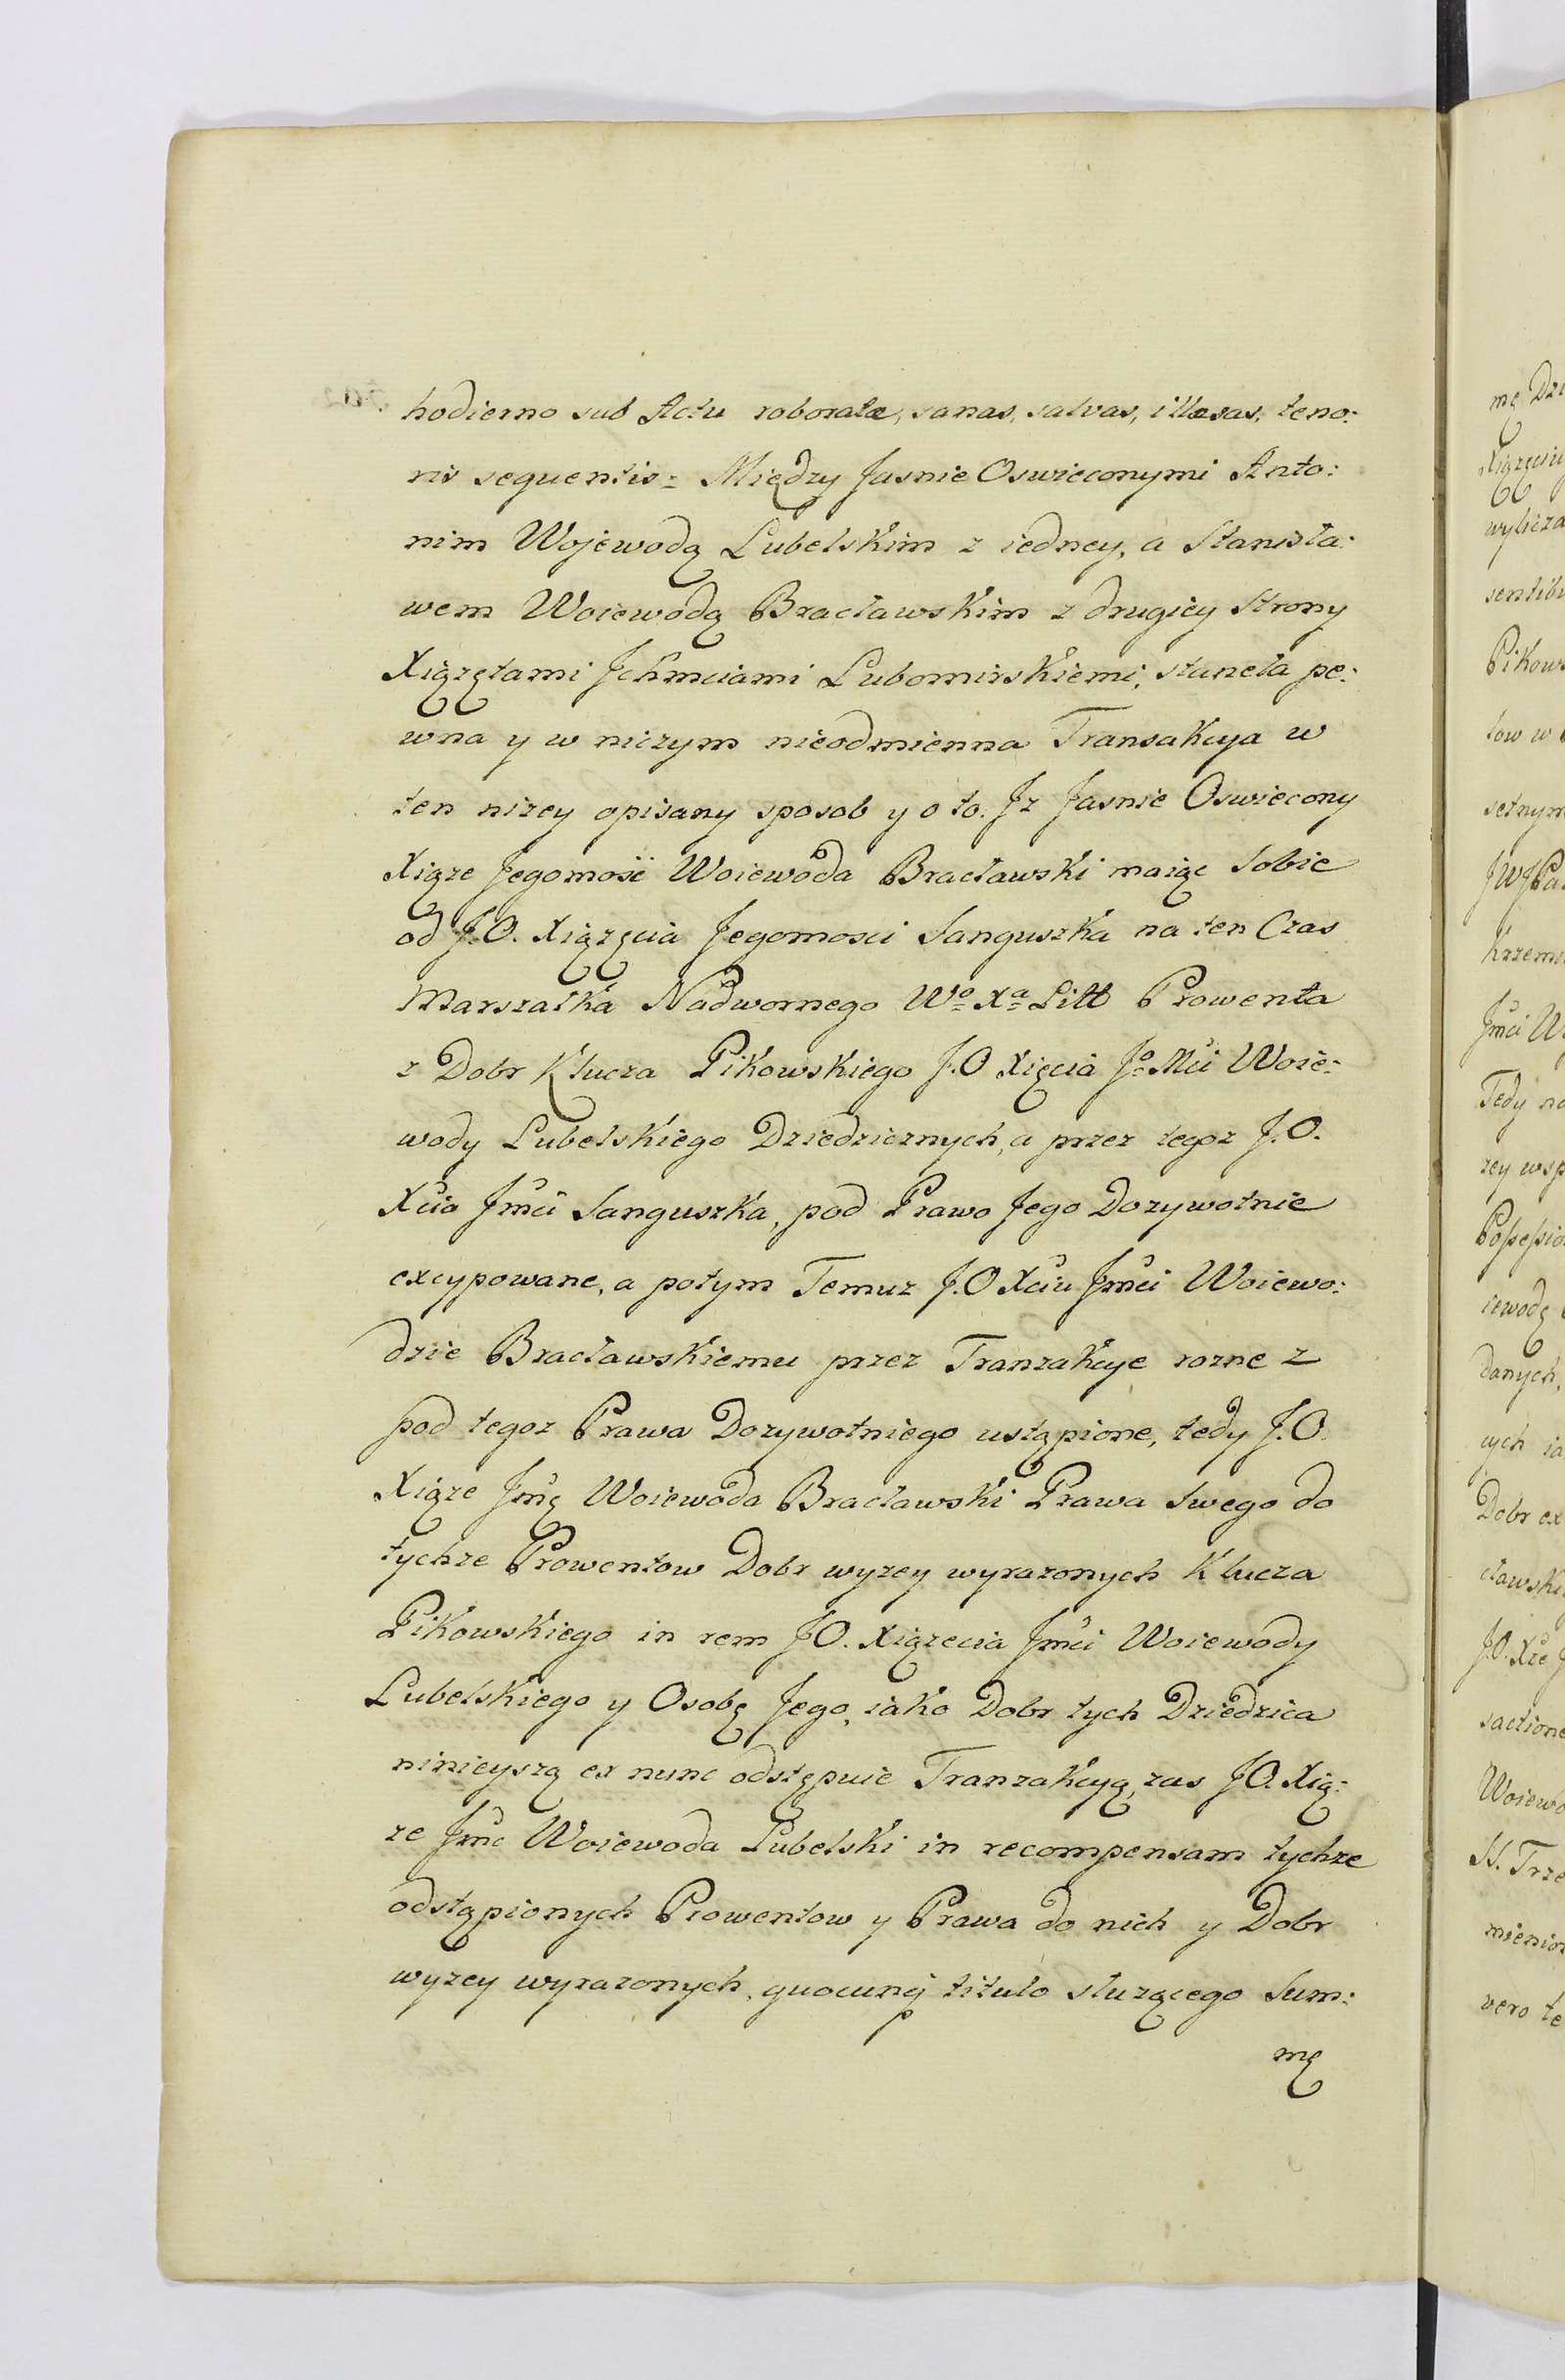 hodierno sub Actu roboratæ, sanas, salvas, illæsas, teno:
ris sequentis: Między Jasnie Oswieconymi Anto:
nim Wojewodą Lubelskim z iedney, a Stanisła:
wem Woiewodą Bracławskim z drugiey Strony
Xiązętami Jchmciami Lubomirskiemi, staneła pe:
wna y w niczym nieodmienna Transakcya w
ten nizey opisany sposob y o to. Jz Jasnie Oswiecony
Xiąze Jegomość Woiewoda Bracławski maiąc Sobie
od J.O. Xiązęcia Jegomosci Sanguszka na ten Czas
Marszałka Nadwornego Wo Xa Litt Prowenta
z Dobr Klucza Pikowskiego J.O Xięcia Jo Mci Woie:
wody Lubelskiego Dziedzicznych, a przez tegoz J.O.
Xcia Jmci Sanguszka, pod Prawo Jego Dozywotnie
excypowane, a potym Temuz J.O Xciu Jmci Woiewo:
dzie Bracławskiemu przez Tranzakcye rozne z
pod tegoz Prawa Dozywotniego ustąpione, tedy J.O.
Xiąze Jmę Woiewoda Bracławski Prawa Swego do
tychze Prowentow Dobr wyzey wyrazonych Klucza
Pikowskiego in rem JO. Xiązecia Jmci Woiewody
Lubelskiego y Osobę Jego, iako Dobr tych Dziedzica
ninieyszą ex nunc odstępuie Tranzakcyą, zas JO. Xią:
ze Jmc Woiewoda Lubelski in recompensam tychze
odstąpionych Prowentow y Prawa do nich y Dobr
wyzey wyrazonych, quocunq titulo słuzącego Sum:
mę
mę
Xiązęciu
wylicza
sentibu
Pikows
tow w
setnym
Krzem
Jmci W
Tedy na
zey wsp
iewodę
danych,
cych ia
Dobr ex
cławski
J.O. Xże J
saction
Woiewo
Trze
mienion
vero te